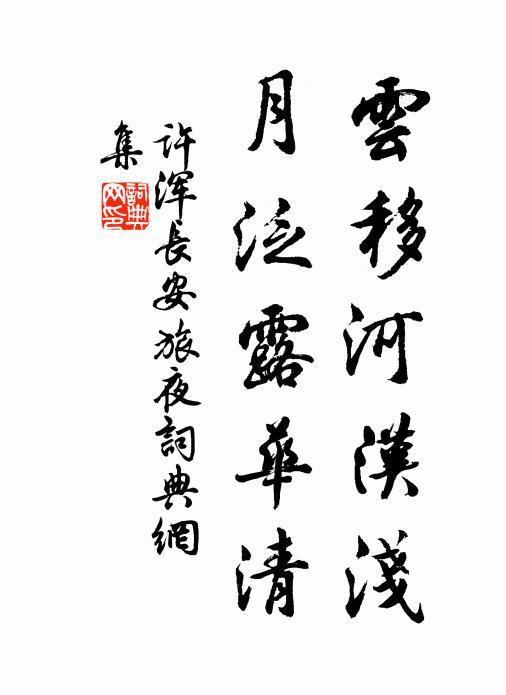 雲移河漢淺
月泛露華清
许浑長安旅夜詞典網
集
詞典网印